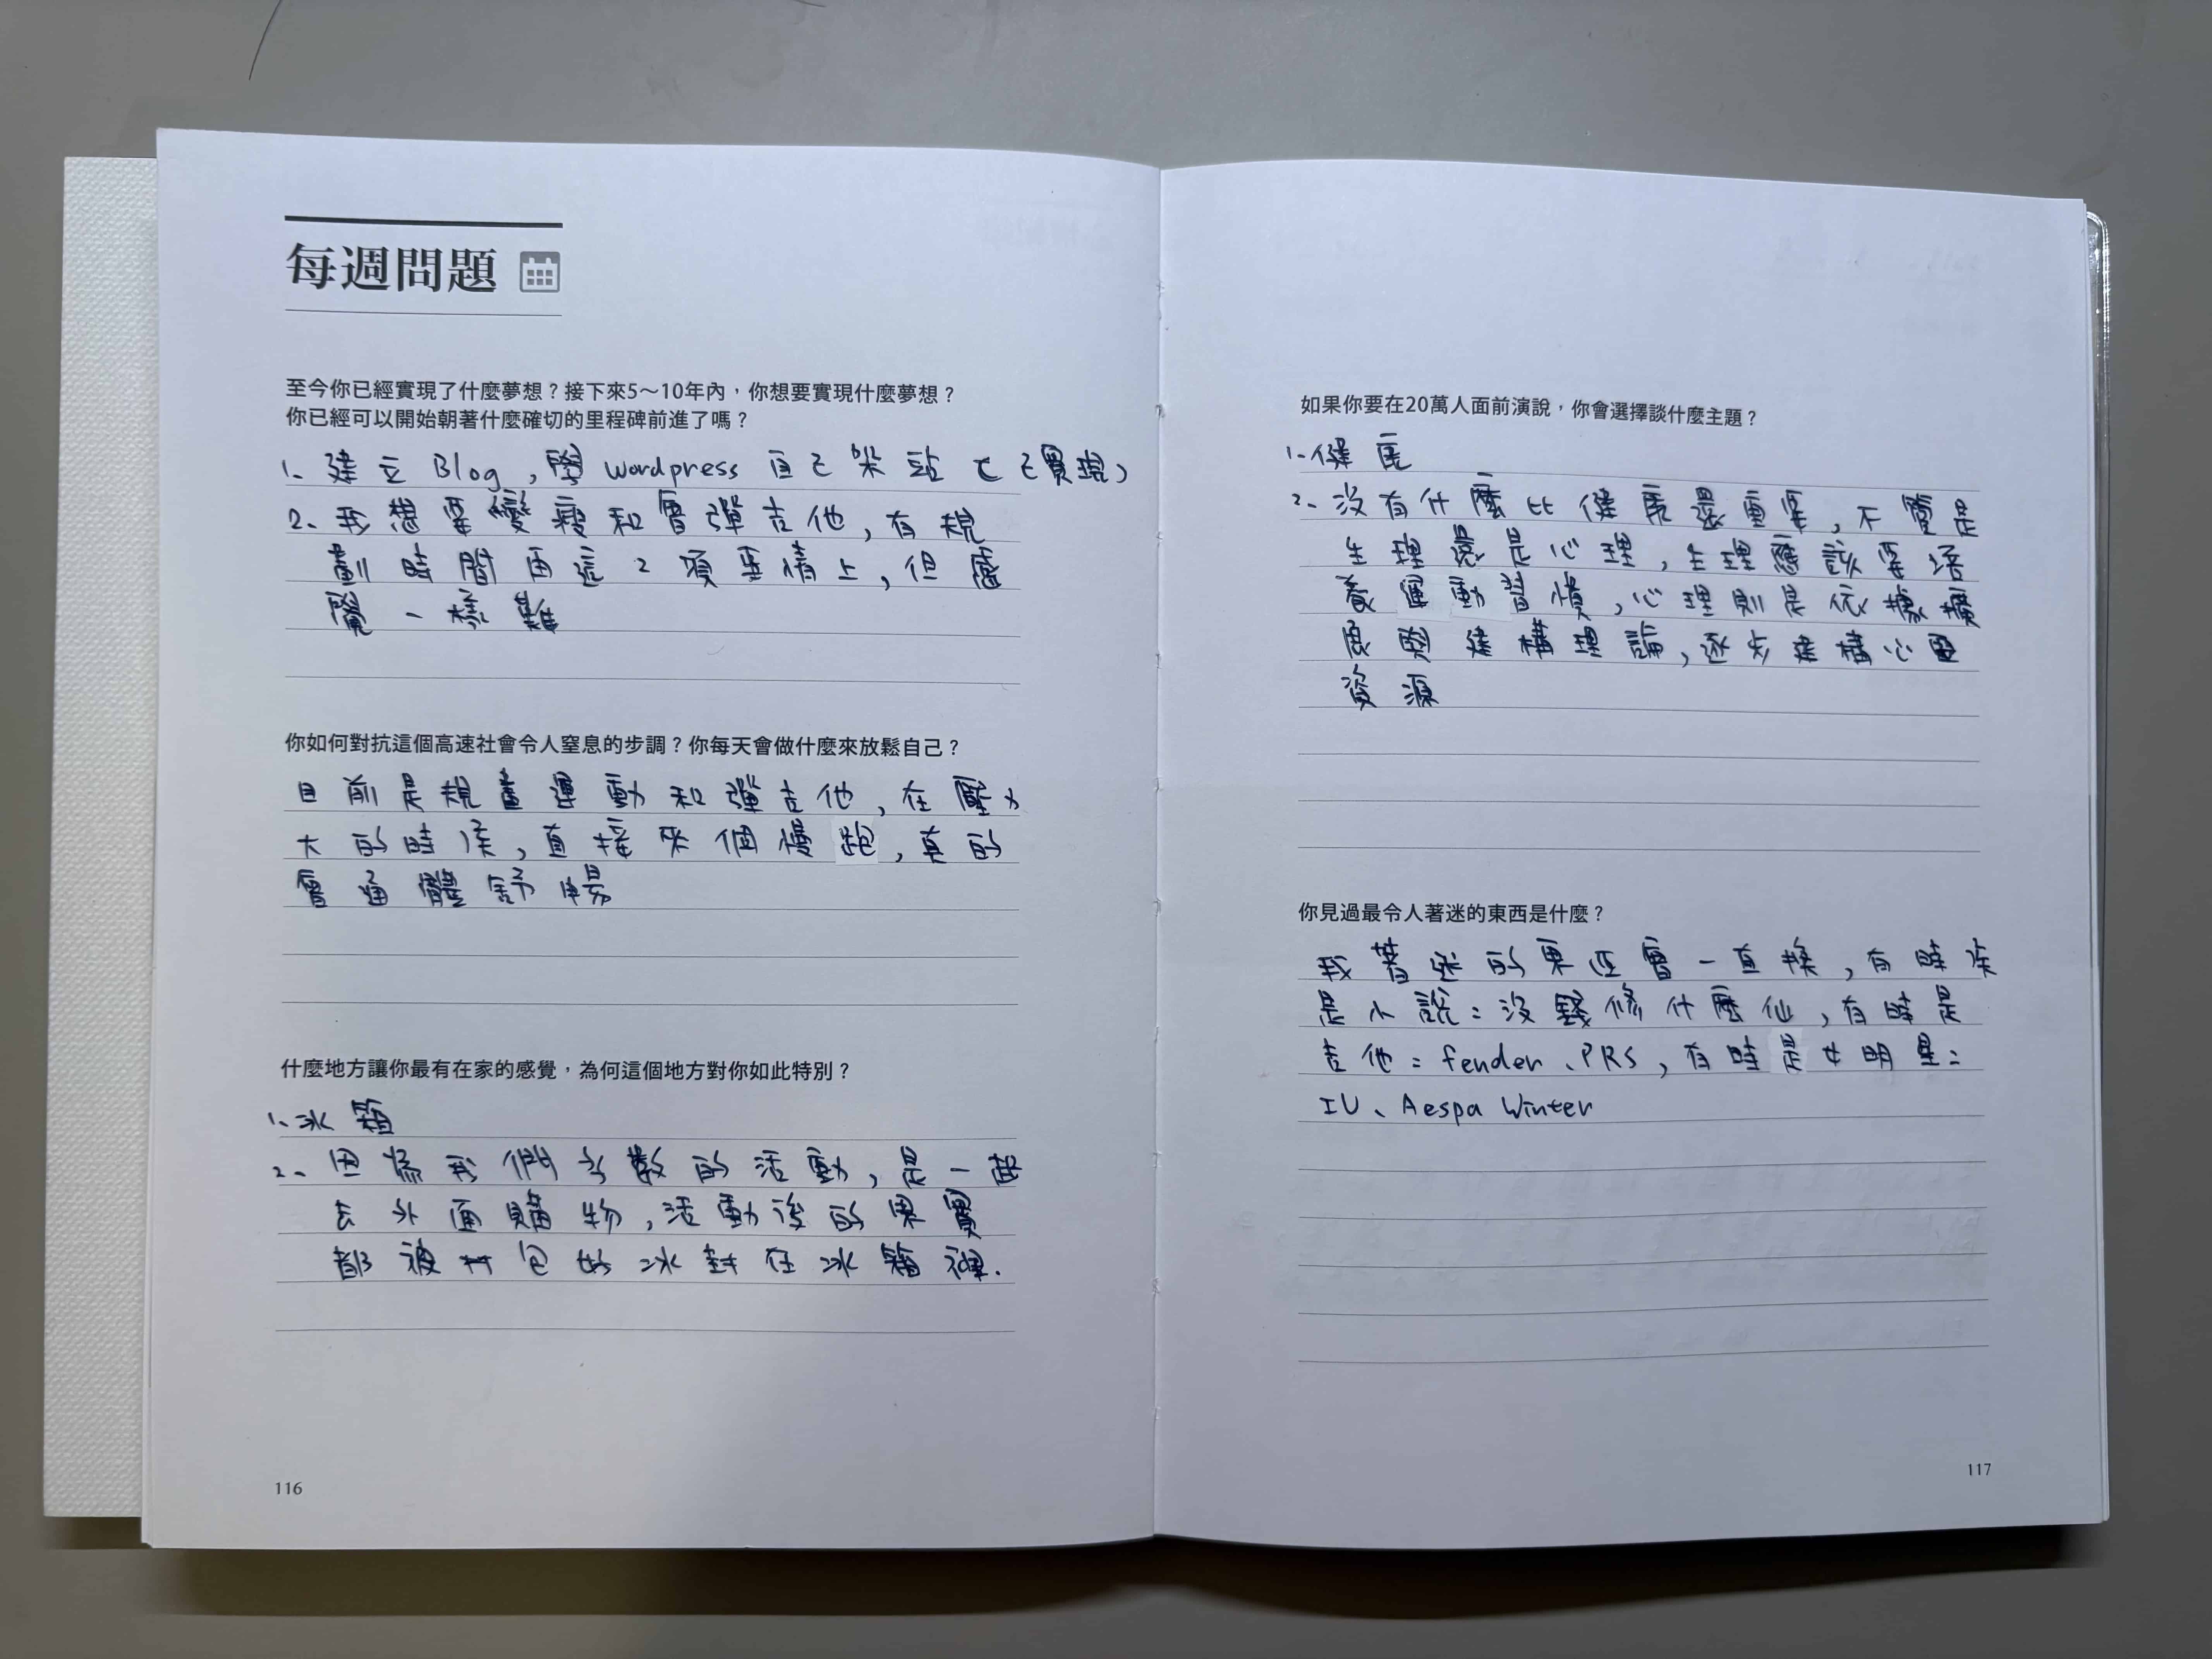 每週問題
至今你已經實現了什麼夢想？接下來5～10年內，你想要實現什麼夢想？
你已經可以開始朝著什麼確切的里程碑前進了嗎？
1、建立Blog，學wordpress 自己架站（已實現）
2、我想要變瘦和會彈吉他，有規
劃時間再這2項事情上，但感
覺一樣難
你如何對抗這個高速社會令人窒息的步調？你每天會做什麼來放鬆自己？
目前是規畫運動和彈吉他，在壓力
大的時候，直接來個慢跑，真的
會通體舒暢
什麼地方讓你最有在家的感覺，為何這個地方對你如此特別？
1、冰箱
2、因為我們多數的活動，是一起
去外面購物，活動後的果實
都被打包好冰封在冰箱裡.
116
如果你要在20萬人面前演說，你會選擇談什麼主題？
1、健康
2、沒有什麼比健康還重要，不管是
生理還是心理，生理應該要培
養運動習慣，心理則是依據擴
展與建構理論，逐步建構心靈
資源
你見過最令人著迷的東西是什麼？
我著迷的東西會一直換，有時候
是小說：沒錢修什麼仙，有時是
吉他：fender、PRS，有時是女明星：
IU、Aespa Winter
117